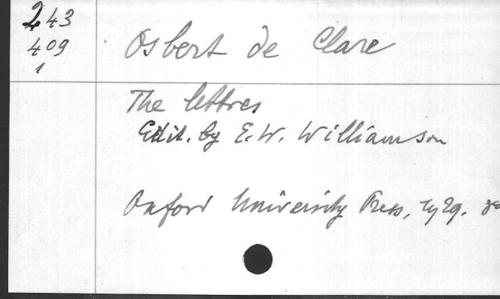 243
409
1
Osbert de Clare
The lettres
Edit. by E.W. Williamson
Oxford University Press, 1929.